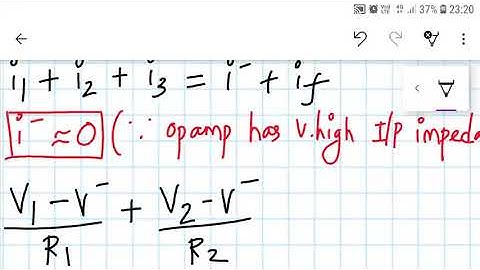 37% 23:20
i₁ + i₂ + i₃ = i⁻ + if
i⁻ ≈ 0 (∵ opamp has V.high I/P impeda
V₁ - V⁻ + V₂ - V⁻
R₁ R₂